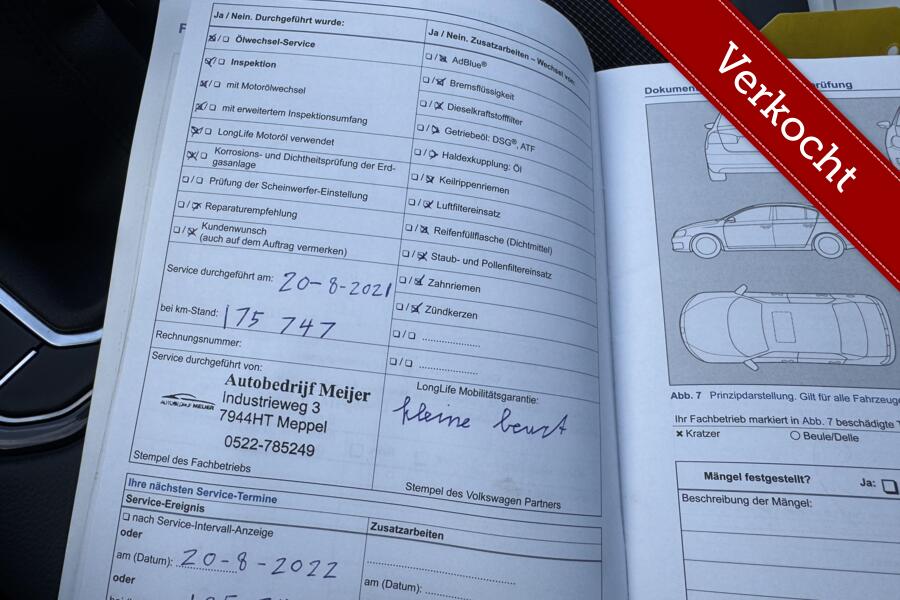 Verkocht
Ja / Nein. Durchgeführt wurde:
Ölwechsel-Service
Inspektion
mit Motorölwechsel
mit erweitertem Inspektionsumfang
LongLife Motoröl verwendet
Korrosions- und Dichtheitsprüfung der Erd-
gasanlage
Prüfung der Scheinwerfer-Einstellung
Reparaturempfehlung
Kundenwunsch
(auch auf dem Auftrag vermerken)
Service durchgeführt am: 20-8-2021
bei km-Stand: 175 747
Rechnungsnummer:
Service durchgeführt von:
Autobedrijf Meijer
AUTOBEDRIJF MEIJER
Industrieweg 3
7944HT Meppel
0522-785249
Stempel des Fachbetriebs
Ja / Nein. Zusatzarbeiten – Wechsel von:
AdBlue®
Bremsflüssigkeit
Dieselkraftstofffilter
Getriebeöl: DSG®, ATF
Haldexkupplung: Öl
Keilrippenriemen
Luftfiltereinsatz
Reifenfüllflasche (Dichtmittel)
Staub- und Pollenfiltereinsatz
Zahnriemen
Zündkerzen
LongLife Mobilitätsgarantie:
kleine beurt
Stempel des Volkswagen Partners
Ihre nächsten Service-Termine
Service-Ereignis
nach Service-Intervall-Anzeige
oder
am (Datum): 20-8-2022
oder
Zusatzarbeiten
am (Datum):
Abb. 7 Prinzipdarstellung. Gilt für alle
Ihr Fachbetrieb markiert in Abb. 7 beschädigte
Kratzer
Beule/Delle
Mängel festgestellt? Ja:
Beschreibung der Mängel: